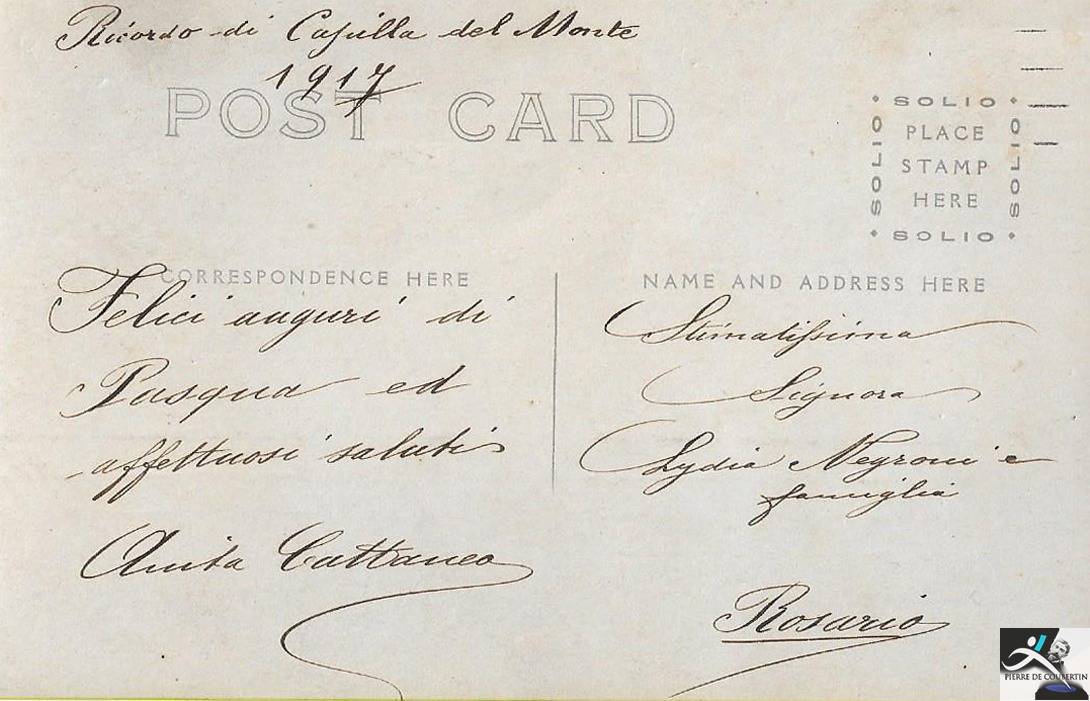 Ricordo di Capilla del Monte
1917
POST CARD
SOLIO
SOLIO PLACE SOLIO
STAMP
HERE
SOLIO
CORRESPONDENCE HERE
Felici auguri di
Pasqua ed
affettuosi saluti
Anita Cattaneo
NAME AND ADDRESS HERE
Stimatissima
Signora
Lydia Negroni e
famiglia
Rosario
PIERRE DE COUBERTIN